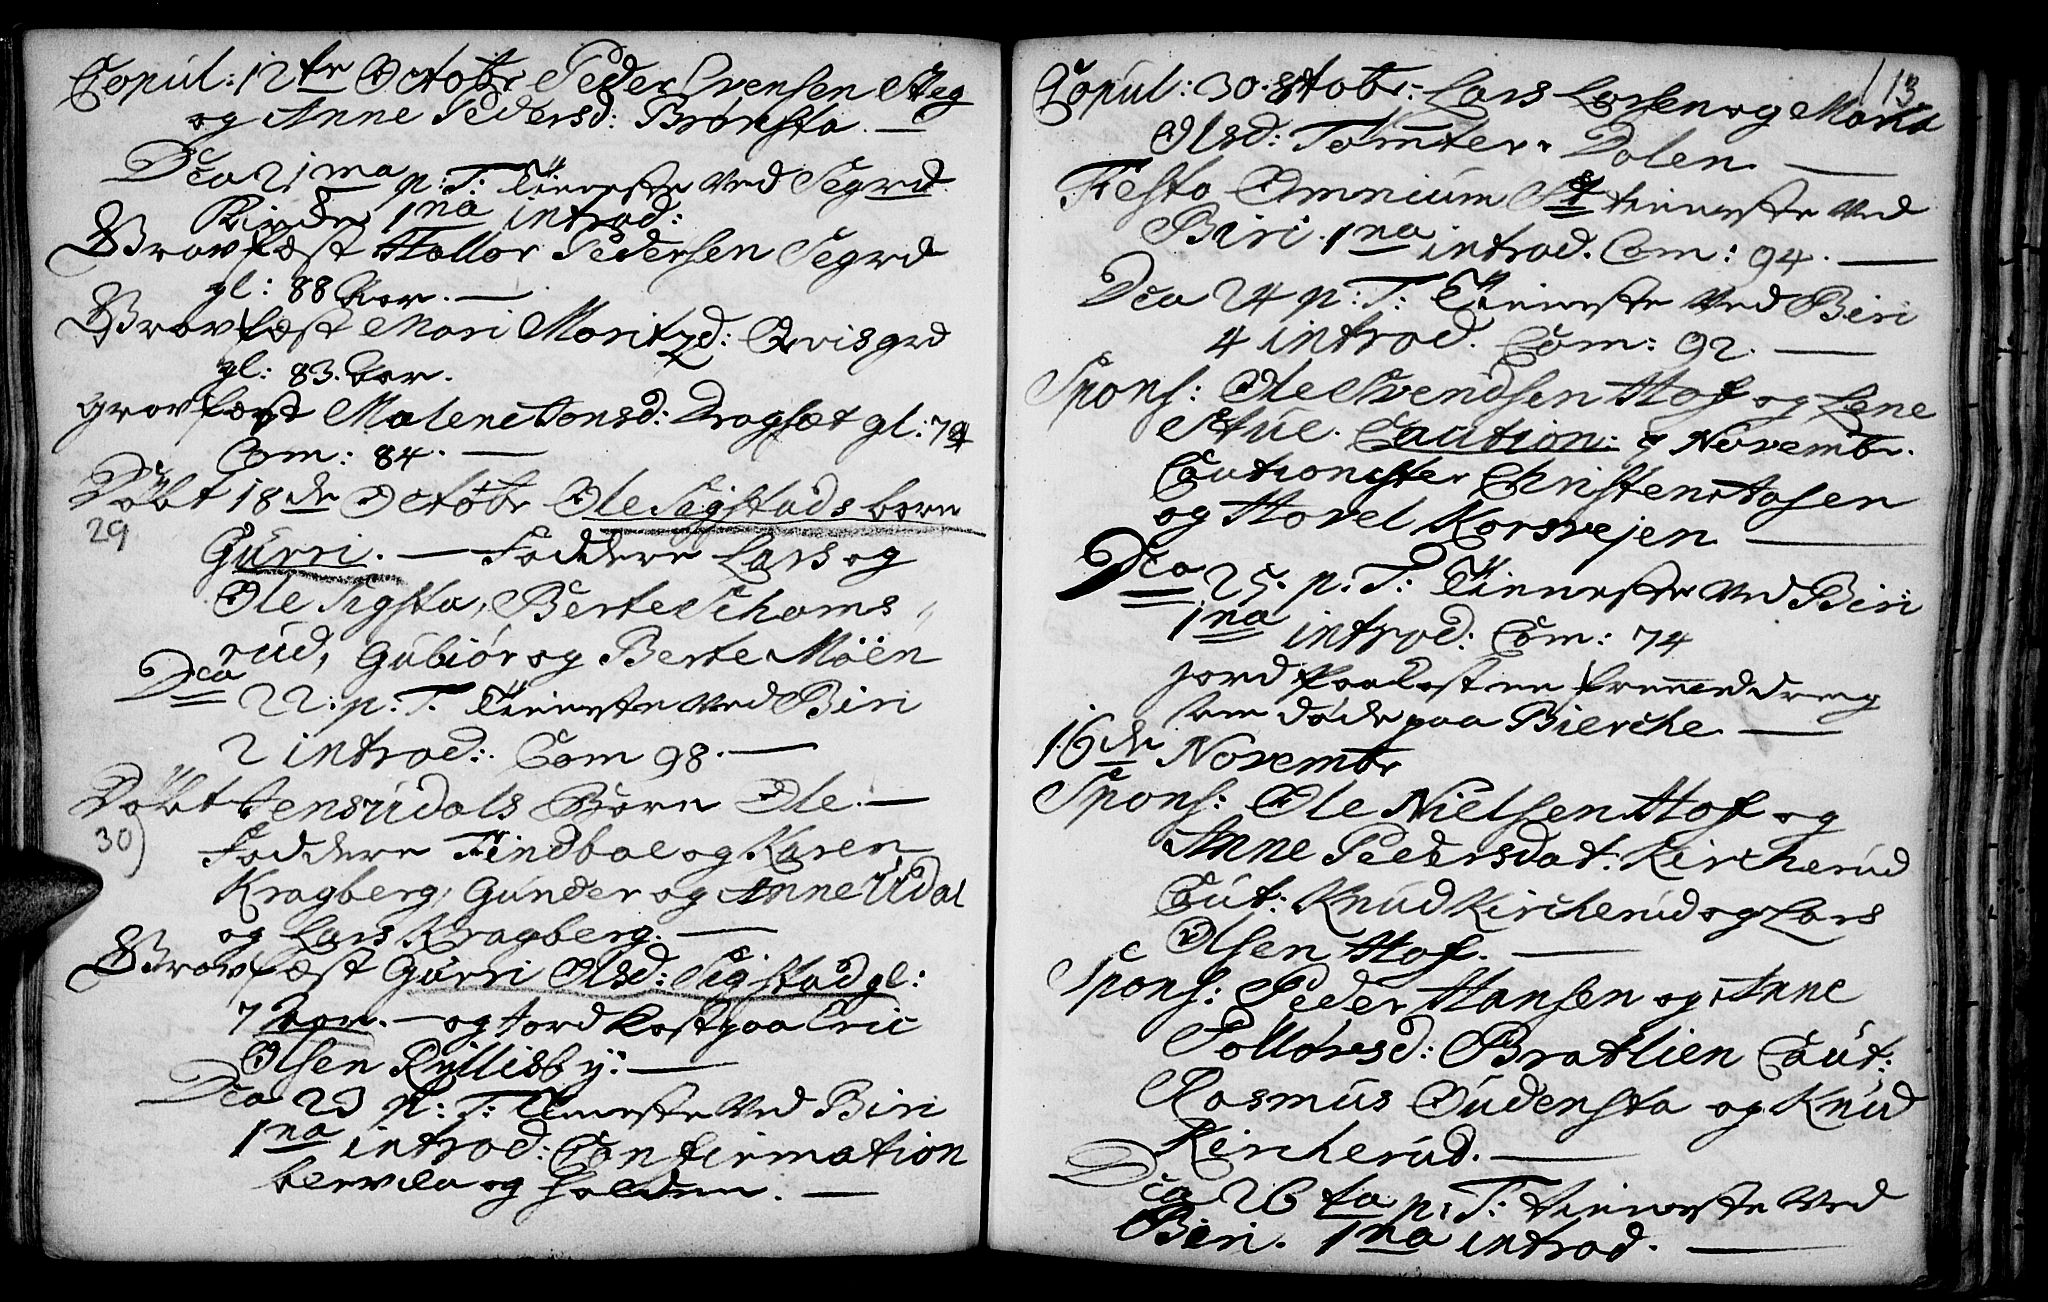 Copul: 12te Octobr Peder Svensen Steg
og Anne Pedersd: Brønsta. —
Dca 21ma p: T: Tieneste ved Segrd
Kirke 1na introd:
Gravfæst Hallor Pedersen Segrd
gl: 88 aar. —
Gravfæst Mari Moritzd: Qvisgrd
gl: 83. aar.
gravfæst Malene Tonsd: Dragset gl: 74
Com: 84. —
Døbt 18de Octobr Ole Sigstads barn
29
Gurri. — Faddere Lars og
Ole Sigsta, Berte Schams
rud, Gubiør og Berte Möen
Dca 22: p: T. Tieneste ved Biri
2 introd:. Com 98. —
Døbt Jens Udals Barn Ole. —
30)
Faddere Findbal og Karen
Kragberg, Gunder og Anne Udal
og Lars Kragberg. —
Gravfæst Gurri Olsd: Sigstad gl:
7 aar. — og Jord kast paa Eric
Olsen Rÿllisbÿ: —
Dca 23 p: T: Tieneste ved Biri
1na introd: Confirmation
blev da og holden. —
113
Copul: 30. 8tobr: Lars Larsen og Marta
Olsd: Tomter Dalen —
Festo Omnium St tieneste ved
Biri. 1na introd. Com: 94. —
Dca 24 p: T: Tieneste ved Biri
4 introd. Com: 92. —
Spons: Ole Svendsen Hof og Lene
Stue. Caution: 9 Novembr.
Cautionister Christen Aasen
og Havel Korsvejen —
Dca 25. p: T: Tieneste ved Biri
1na introd: Com: 74
Jord paa Cast en fremmed dreng
som døde paa Bierche —
16de Novembr
Spons: Ole Nielsen Hof og
Anne Pedersdat: Kircherud
Caut: Knud Kircherud og Lars
Olsen Hof. —
Spons: Peder Hansen og Anne
Pollorsd: Bratlien Caut:
Rasmus Oudensta og Knud
Kircherud. —
Dca 26ta p: T: tieneste ved
Biri. 1na introd. —